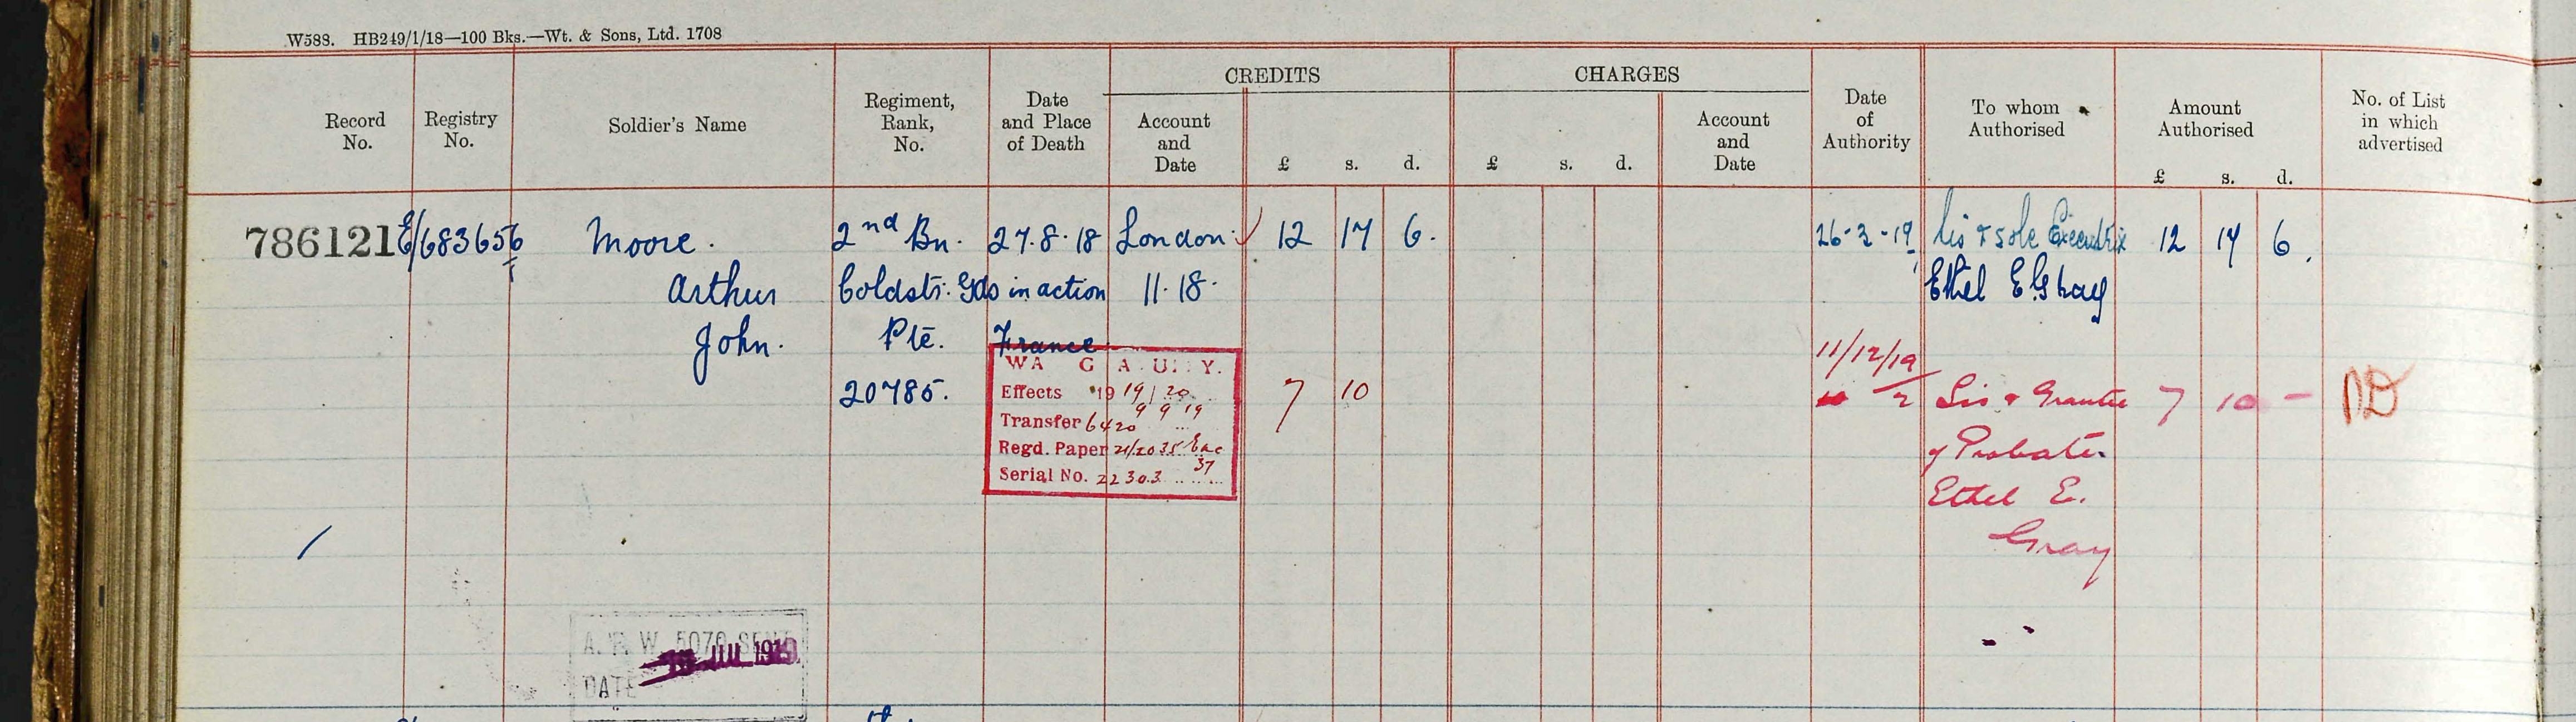 W588. HB249/1/18—100 Bks.—Wt. & Sons, Ltd. 1708
CREDITS CHARGES
Record No. Registry No. Soldier's Name Regiment, Rank, No. Date and Place of Death Account and Date £ s. d. £ s. d. Account and Date Date of Authority To whom Authorised Amount Authorised £ s. d. No. of List in which advertised
786121 E/683656 Moore. 2nd Bn. 27.8.18 London. 12 17 6. 26-3-19 Sis & sole Executrix 12 17 6.
Arthur Coldstr. Gds in action 11.18. Ethel E. Gray
John. Pte. France
11/12/19
20785. 7 10 Sis & Grantee 7 10 – ND
of Probate.
Ethel E.
Gray
WA G A U Y.
Effects 1919/20
Transfer 6420 9 9 19
Regd. Paper
Serial No. 22303
A. F. W. 5070 SENT
DATE 1919